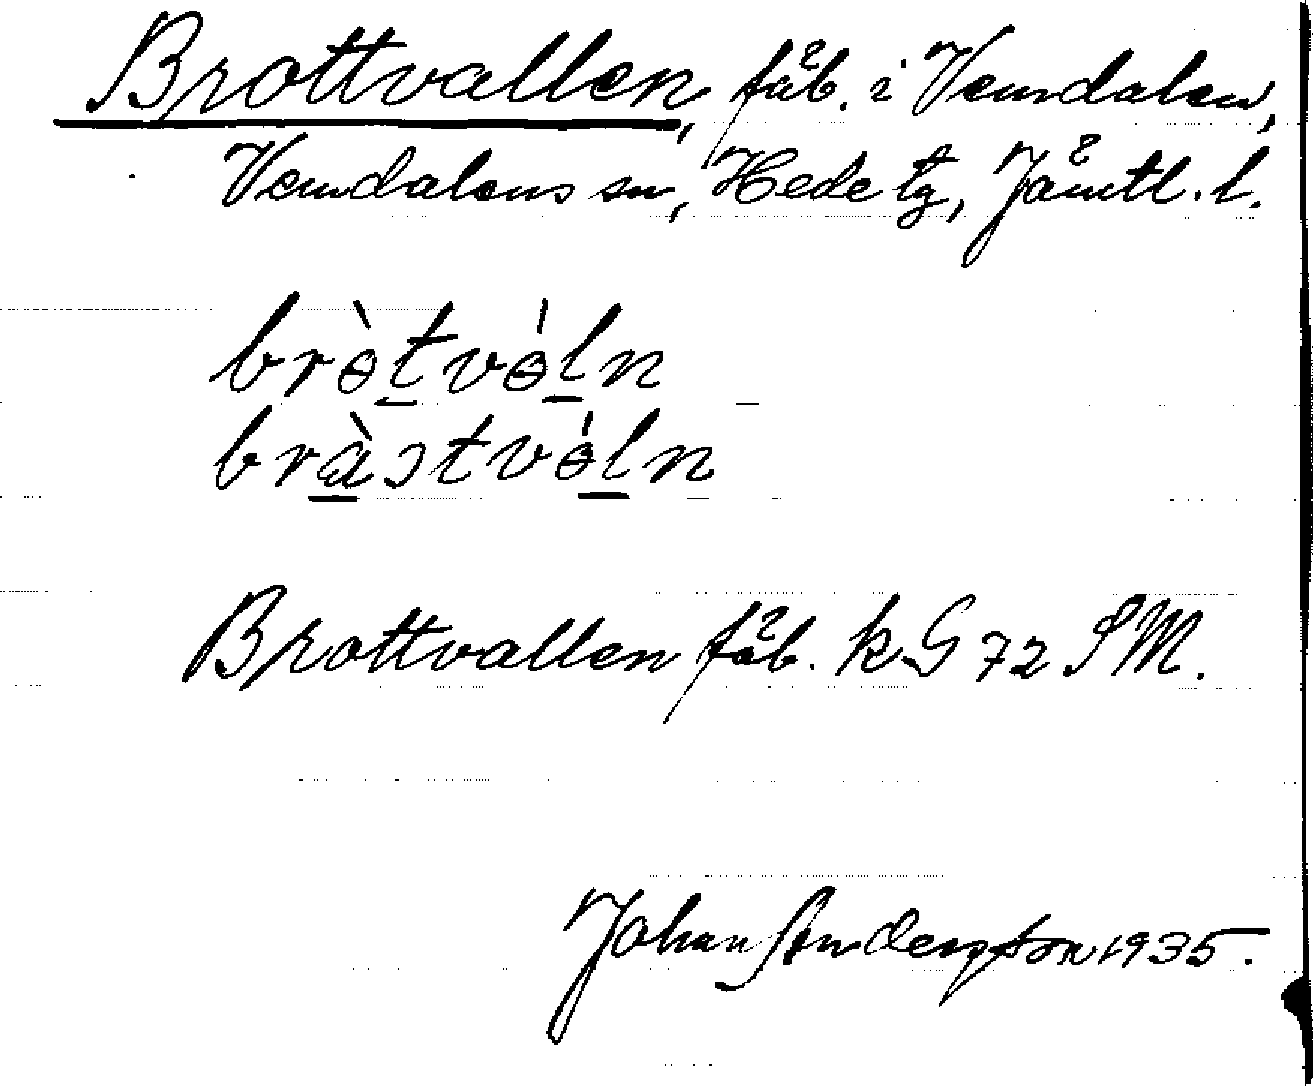 Brottvallen, fäb. i Vemdalen,
Vemdalens sn, Hede tg, Jämtl. l.
brɵ̀tvɵ́ln
bràstvɵ́ln
Brottvallen fäb. kG 72 SM.
Johan Anderzson 1935.